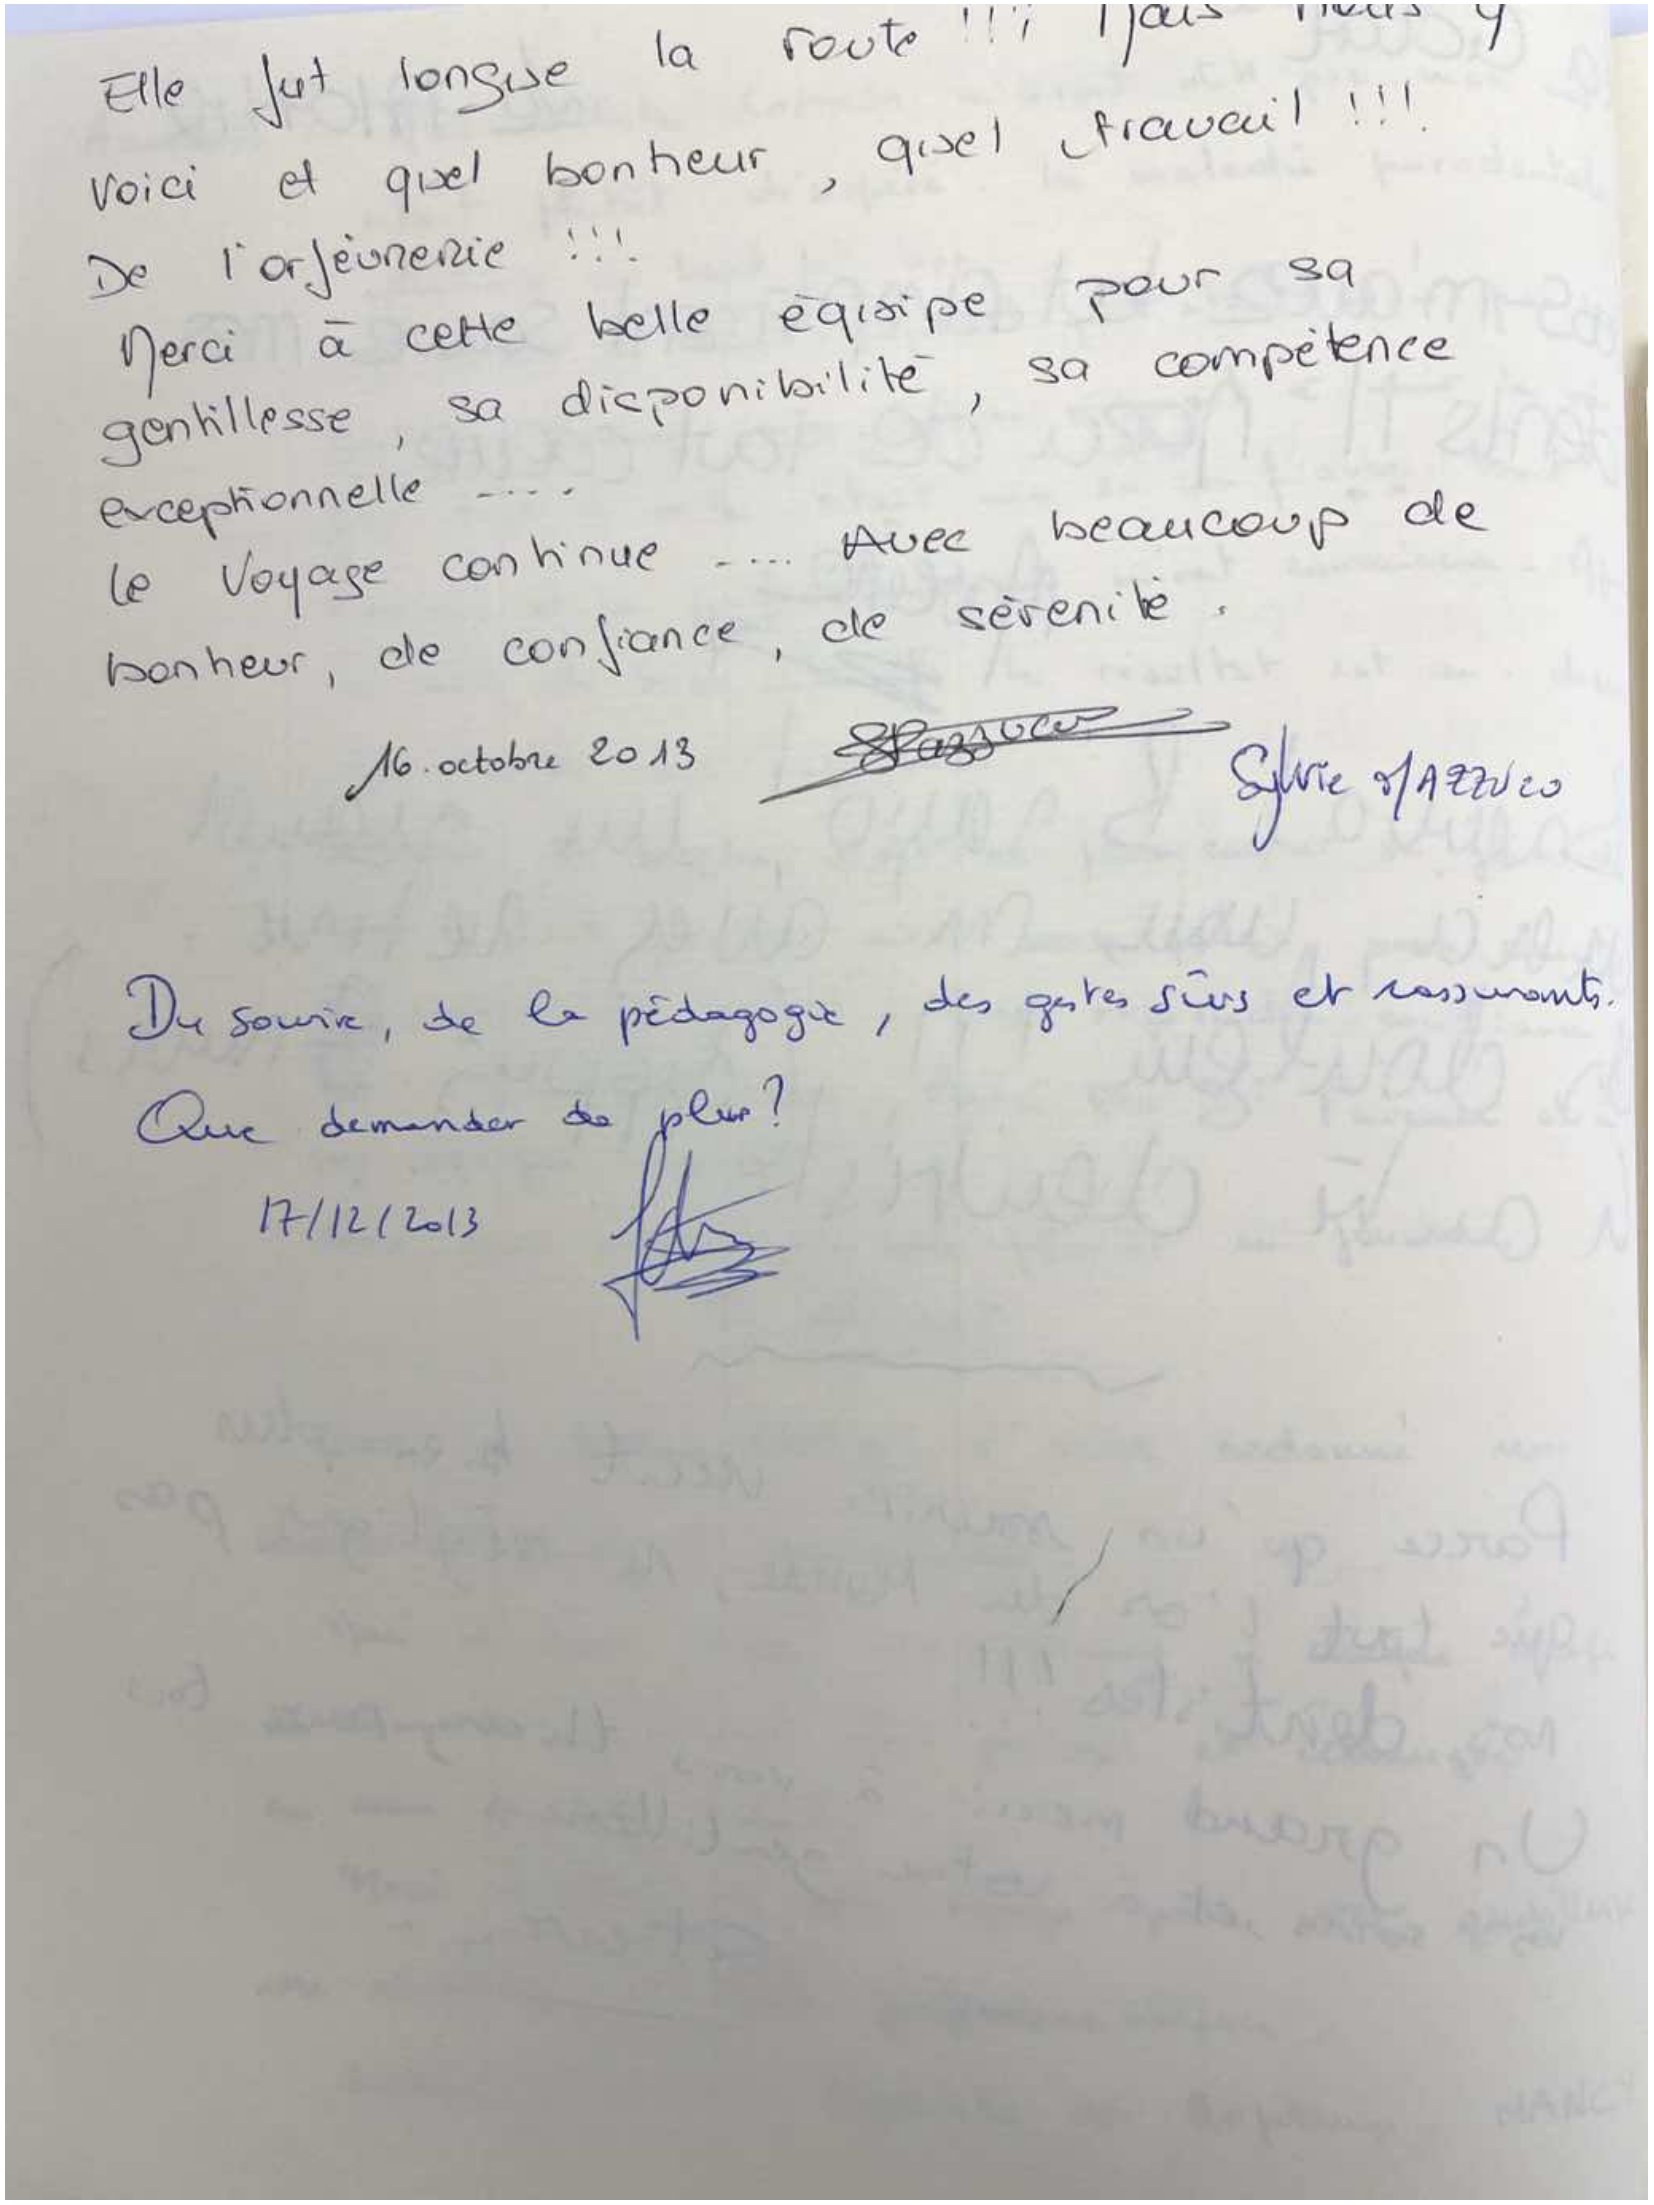 Elle fut longue la route !!! Mais nous y
voici et quel bonheur, quel travail !!!
De l'orfèvrerie !!!
Merci à cette belle équipe pour sa
gentillesse, sa disponibilité, sa compétence
exceptionnelle .....
Le voyage continue .... Avec beaucoup de
bonheur, de confiance, de sérénité.
16.octobre 2013
Sylvie MAZZUCO
Du sourire, de la pédagogie, des gestes sûrs et rassurants.
Que demander de plus?
17/12/2013